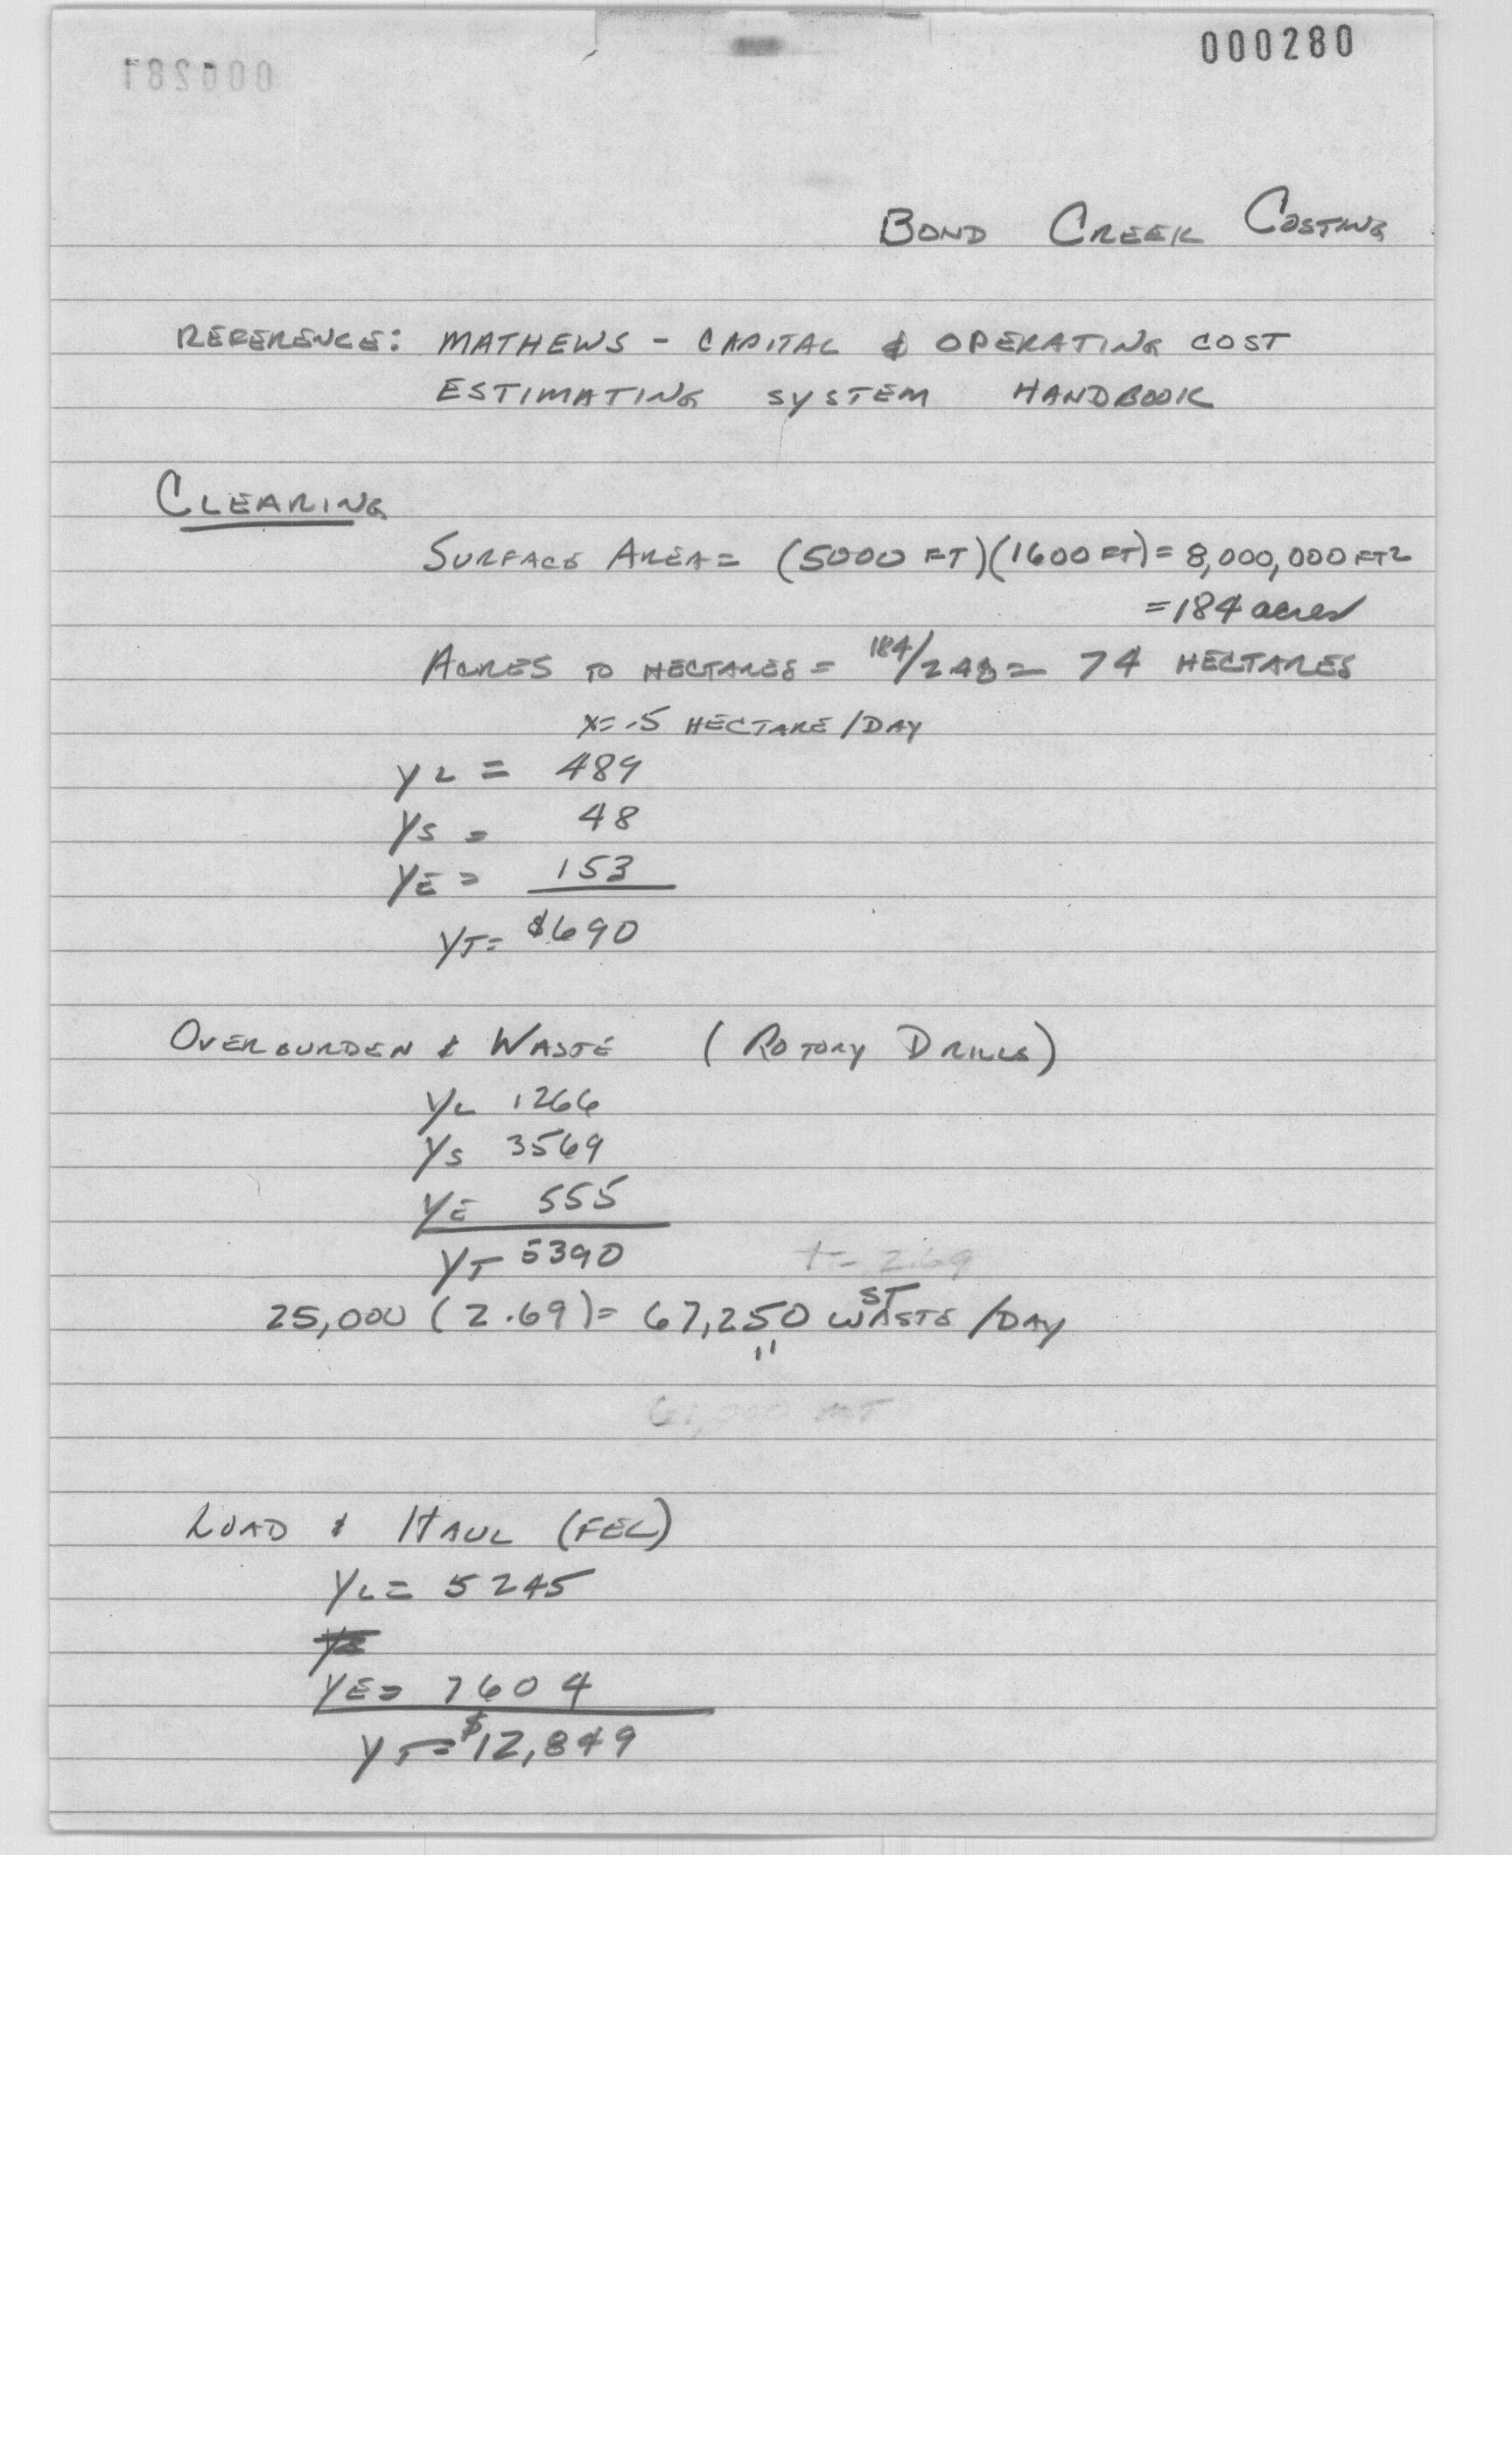 000280
000281
BOND CREEK COSTING
REFERENCE: MATHEWS - CAPITAL & OPERATING COST
ESTIMATING SYSTEM HANDBOOK
CLEARING
SURFACE AREA = (5000 FT)(1600 FT) = 8,000,000 FT2
= 184 acres
ACRES TO HECTARES = 184/2.48 = 74 HECTARES
X = .5 HECTARE/DAY
YL = 489
YS = 48
YE = 153
YT = $690
OVERBURDEN & WASTE (ROTORY DRILLS)
YL 1266
YS 3569
YE 555
YT 5390
t = 2.69
25,000 (2.69) = 67,250 ST WASTE /DAY
"
61,000 MT
LOAD & HAUL (FEL)
YL = 5245
YE = 7604
YT = $12,849